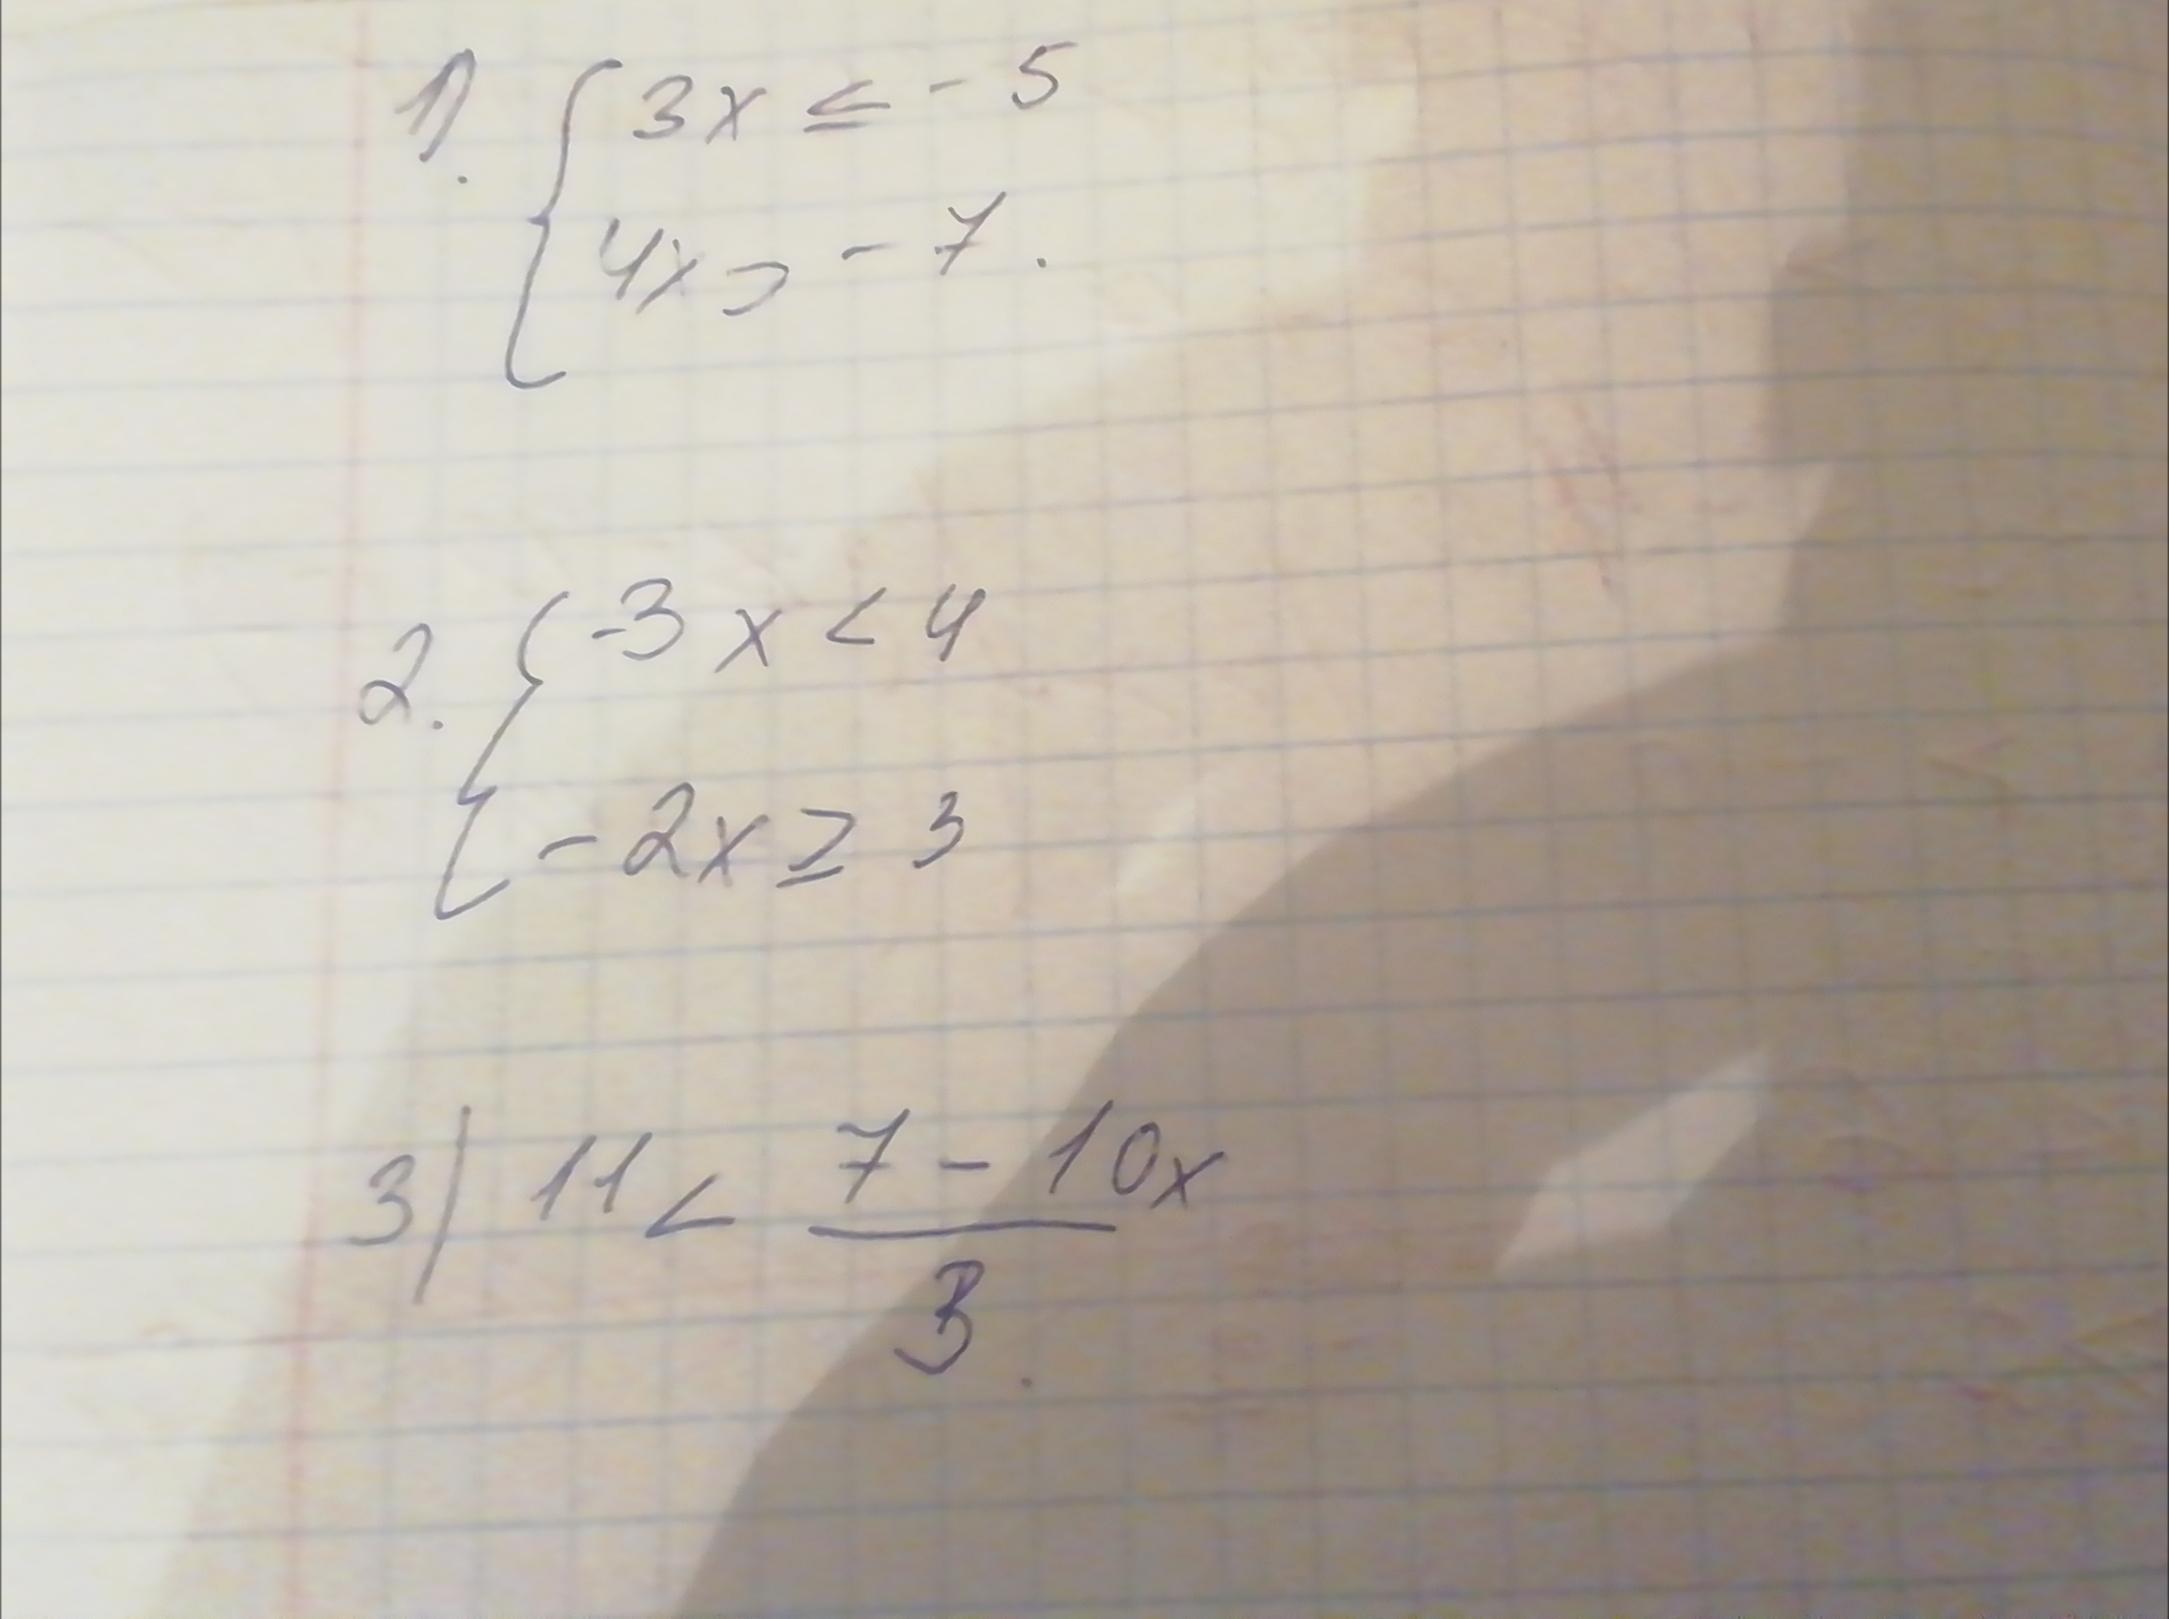 1). { 3x ≤ - 5
4x > - 7.
2. { -3x < 4
- 2x ≥ 3
3) 11 < 7 - 10x
3.